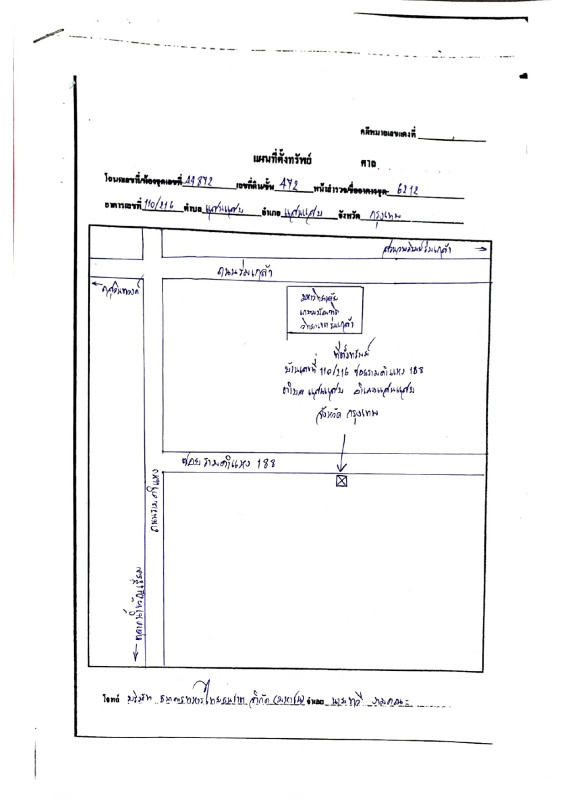 คดีหมายเลขแดงที่
แผนที่ตั้งทรัพย์ ศาล
โฉนดเลขที่/ห้องชุดเลขที่ 44872 เลขที่ดิน/ชั้น 472 หน้าสำรวจ/ชื่ออาคารชุด 6212
อาคารเลขที่ 110/216 ตำบล แสนแสบ อำเภอ แสนแสบ จังหวัด กรุงเทพ
ถนนร่มเกล้า
มหาวิทยาลัย
เกษมบัณฑิต
วิทยาเขตร่มเกล้า
ที่ตั้งทรัพย์
บ้านเลขที่ 110/216 ซอยรามคำแหง 188
ตำบล แสนแสบ อำเภอแสนแสบ
จังหวัด กรุงเทพ
ซอยรามคำแหง 188
ถนนรามคำแหง
โจทก์ บริษัท ธนาคารทหารไทยธนชาต จำกัด (มหาชน) จำเลย